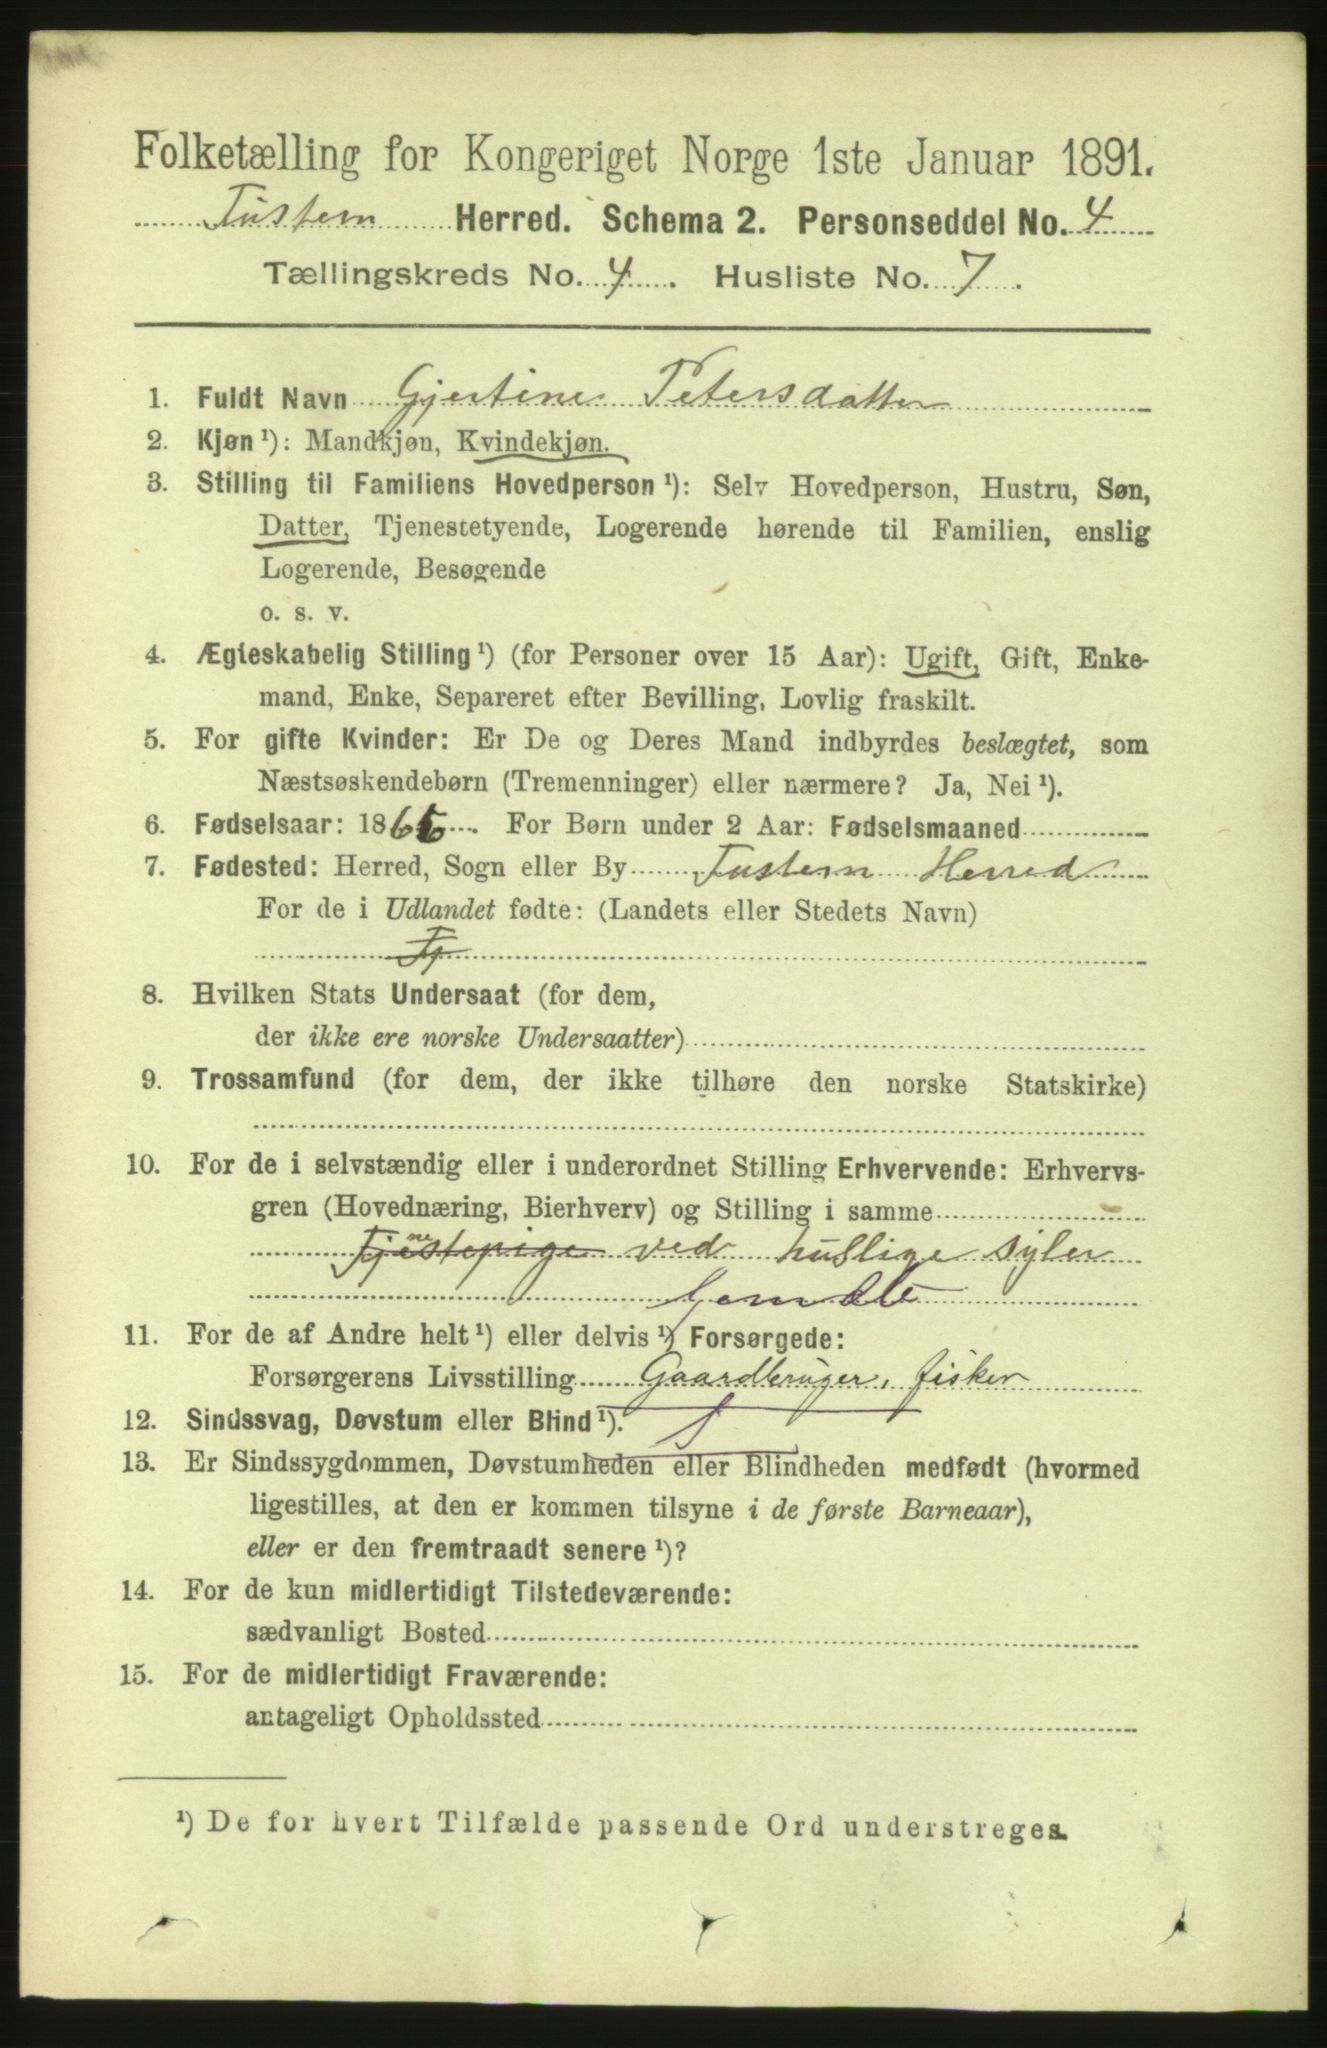 Folketælling for Kongeriget Norge 1ste Januar 1891.
Tustern Herred. Schema 2. Personseddel No. 4
Tællingskreds No. 4. Husliste No. 7.
1. Fuldt Navn Gjertine Petersdatter
2. Kjøn ¹): Mandkjøn, Kvindekjøn.
3. Stilling til Familiens Hovedperson ¹): Selv Hovedperson, Hustru, Søn,
Datter, Tjenestetyende, Logerende hørende til Familien, enslig
Logerende, Besøgende
o. s. v.
4. Ægteskabelig Stilling ¹) (for Personer over 15 Aar): Ugift, Gift, Enke-
mand, Enke, Separeret efter Bevilling, Lovlig fraskilt.
5. For gifte Kvinder: Er De og Deres Mand indbyrdes beslægtet, som
Næstsøskendebørn (Tremenninger) eller nærmere? Ja, Nei ¹).
6. Fødselsaar: 18. For Børn under 2 Aar: Fødselsmaaned
7. Fødested: Herred, Sogn eller By Tustern Herred
For de i Udlandet fødte: (Landets eller Stedets Navn)
8. Hvilken Stats Undersaat (for dem,
der ikke ere norske Undersaatter)
9. Trossamfund (for dem, der ikke tilhøre den norske Statskirke)
10. For de i selvstændig eller i underordnet Stilling Erhvervende: Erhvervs-
gren (Hovednæring, Bierhverv) og Stilling i samme
Tjenestepige ved huslige syler
11. For de af Andre helt ¹) eller delvis ¹) Forsørgede:
Forsørgerens Livsstilling Gaardbruger, fisker
12. Sindssvag, Døvstum eller Blind ¹). S
13. Er Sindssygdommen, Døvstumheden eller Blindheden medfødt (hvormed
ligestilles, at den er kommen tilsyne i de første Barneaar),
eller er den fremtraadt senere ¹)?
14. For de kun midlertidigt Tilstedeværende:
sædvanligt Bosted
15. For de midlertidigt Fraværende:
antageligt Opholdssted
¹) De for hvert Tilfælde passende Ord understreges.